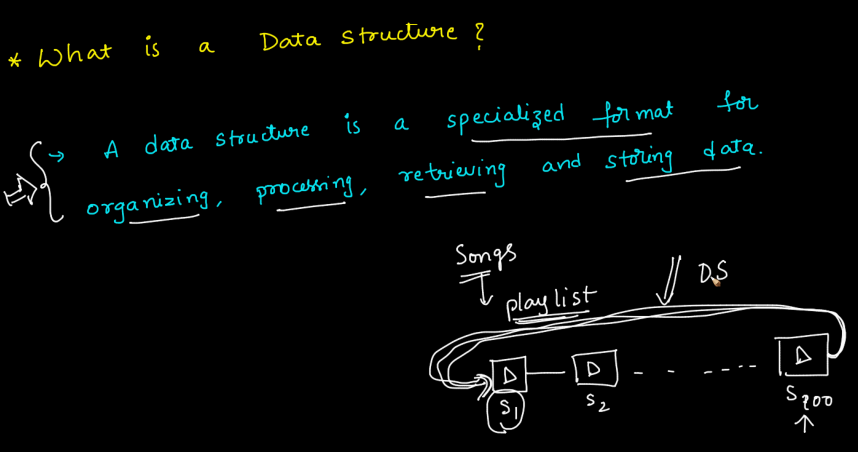 * What is a Data structure?
→ A data structure is a specialized format for
organizing, processing, retrieving and storing data.
Songs
playlist
DS
D D D
S1 S2 S200